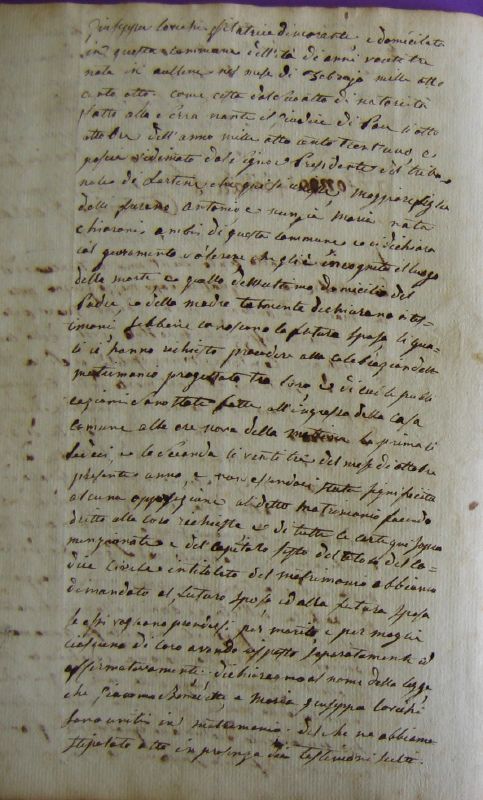 giuseppa Corichi filatrice dimorante e domiciliata
in questa commune dell'età di anni venti tre
nata in aullene nel mese di Febrajo mille otto
cento otto come costa dal atto di notorietà
fatto alla e Serra nante il Giudice di Pau li otto
ottobre dell'anno mille otto cento trent'uno e
poscia dal signor Presidente del tribu-
nale di Sartene, che qui si maggiore figlia
delli furono Antonio e nunzia Maria nata
Chiaroni ambi di questa commune e ci dichiara
col giuramento valersene che gli è incognito il luogo
della morte e quello dell'ultimo domicilio del
Padre e della madre talmente dichiarano i tes-
timoni febbene conoscono la futura sposa li qua-
li ci hanno richiesto procedere alla celebrazion della
matrimonio progettato tra loro e di cui le publi
cazioni sono state fatte all'ingresso della casa
comune alle ore nova della mattina la prima li
sedeci, e la seconda li venti tre del mese di ottobre
presente anno, e non essendoci stata significata
alcuna opposizione al detto matrimonio facendo
dritto alla loro richiesta e di tutte le carte qui sopra
menzionate e del capitaro sesto del titolo del Co-
dice Civile intitolato del matrimonio abbiamo
dimandato al futuro sposo ed alla futura sposa
se essi vogliono prendersi per marito e per moglie
ciascuno di loro avendo risposto separatamente ed
affirmatavamente: dichiaramo al nome della legge
che Giacomo Benedetti, e Maria giuseppa Corichi
sono uniti in matrimonio del che ne abbiamo
stipolato atto in presenza di testimoni scelti.